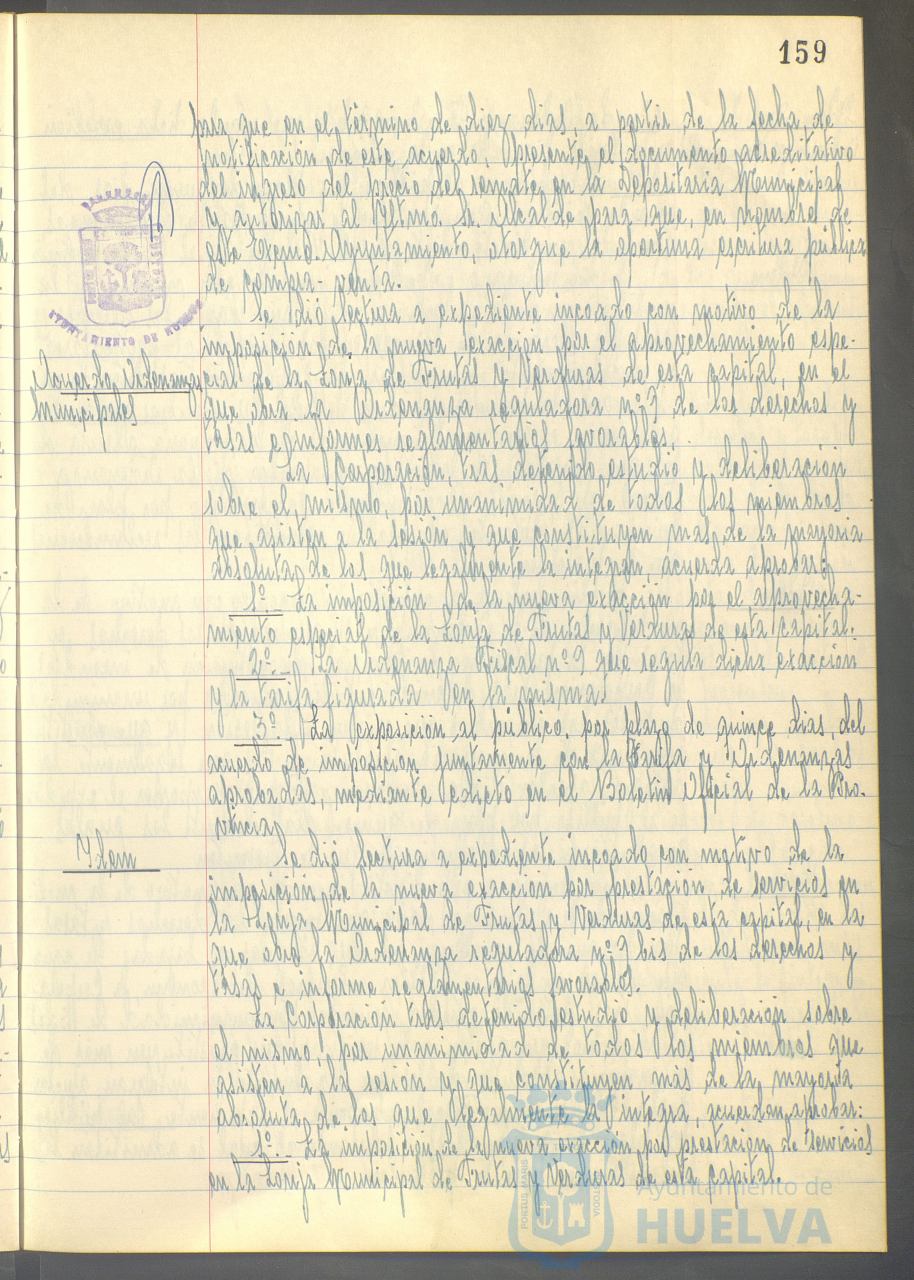 159
para que en el término de diez días, a partir de la fecha de
notificación de este acuerdo, presente el documento acreditativo
del ingreso del precio del remate en la Depositaria Municipal
y autorizar al Iltmo. Sr. Alcalde para que, en nombre de
este Excmo. Ayuntamiento, otorgue la oportuna escritura pública
de compra-venta.
AYUNTAMIENTO DE HUELVA
Se dió lectura a expediente incoado con motivo de la
imposición de la nueva exacción por el aprovechamiento espe-
Acuerdo Ordenanzas
Municipales
cial de la Lonja de Frutas y Verduras de esta capital, en el
que obra la Ordenanza reguladora nº 9 de los derechos y
tasas e informes reglamentarios favorables.
La Corporación, tras detenido estudio y deliberación
sobre el mismo, por unanimidad de todos los miembros
que asisten a la sesión y que constituyen mas de la mayoria
absoluta de los que legalmente la integran acuerda aprobar:
1º- La imposición de la nueva exacción por el aprovecha-
miento especial de la Lonja de Frutas y Verduras de esta capital.
2º- La Ordenanza Fiscal nº 9 que regula dicha exacción
y la tarifa figurada en la misma.
3º La exposición al público, por plazo de quince dias, del
acuerdo de imposición juntamente con la Tarifa y Ordenanzas
aprobadas, mediante edicto en el Boletín Oficial de la Pro-
vincia.
Idem
Se dió lectura a expediente incoado con motivo de la
imposición de la nueva exacción por prestación de servicios en
la Lonja Municipal de Frutas y Verduras de esta capital, en la
que obra la Ordenanza reguladora nº 9 bis de los derechos y
tasas e informe reglamentarios favorables.
La Corporación tras detenido estudio y deliberación sobre
el mismo, por unanimidad de todos los miembros que
asisten a la sesión y que constituyen más de la mayoria
absoluta de los que legalmente la integra, acuerdan aprobar:
1º- La imposición de la nueva exacción por prestación de servicios
en la Lonja Municipal de Frutas y Verduras de esta capital.
Ayuntamiento de
HUELVA